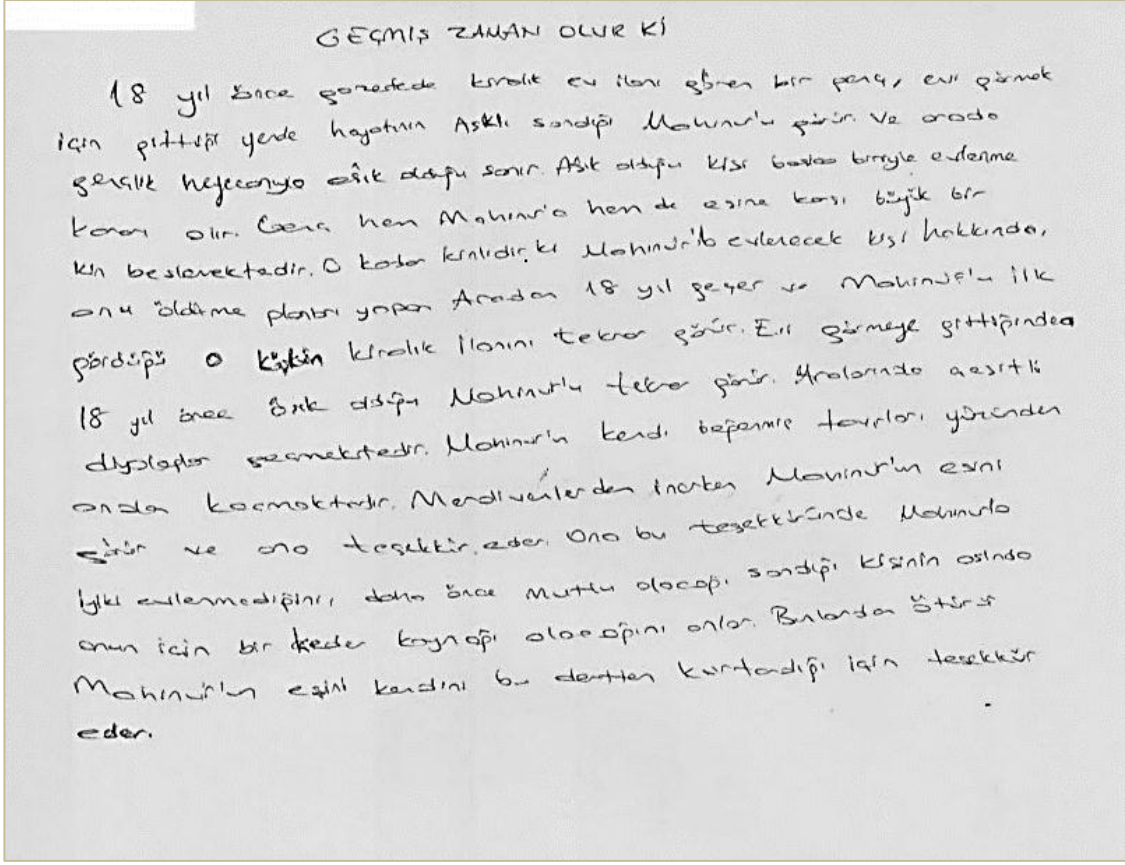 GEÇMİŞ ZAMAN OLUR Kİ
18 yıl önce gazetede kiralık ev ilanı gören bir genç, evi görmek
için gittiği yerde hayatının Aşkı sandığı Mahinur'u görür. Ve orada
gençlik heyecanıyla aşık olduğu sanır. Aşık olduğu kişi başka biriyle evlenme
kararı alır. Genç hem Mahinur'a hem de eşine karşı büyük bir
kin beslemektedir. O kadar kinlidir ki Mahinur'la evlenecek kişi hakkında,
onu öldürme planları yapar. Aradan 18 yıl geçer ve Mahinur'u ilk
gördüğü o köşkün kiralık ilanını tekrar görür. Evi görmeye gittiğinde
18 yıl önce aşık olduğu Mahinur'u tekrar görür. Aralarında çeşitli
diyaloglar geçmektedir. Mahinur'in kendi beğenmiş tavırları yüzünden
ondan kaçmaktadır. Merdivenlerden inerken Mahinur'un eşini
görür ve ona teşekkür eder. Ona bu teşekküründe Mahinurla
iyiki evlenmediğini, daha önce mutlu olacağı sandığı kişinin aslında
onun için bir keder kaynağı olacağını anlar. Bunlardan ötürü
Mahinur'un eşini kendini bu dertten kurtardığı için teşekkür
eder.